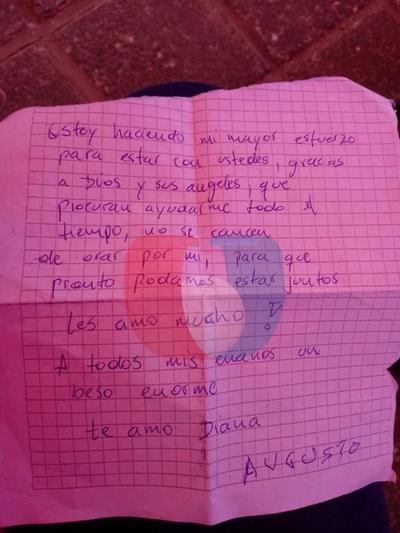 Estoy haciendo mi mayor esfuerzo
para estar con ustedes, gracias
a Dios y sus angeles, que
procuran ayudarme todo A
tiempo, no se cancen
de orar por mi, para que
pronto podamos estar juntos
Les amo mucho
A todos mis enanos un
beso enorme
te amo Diana
AUGUSTO